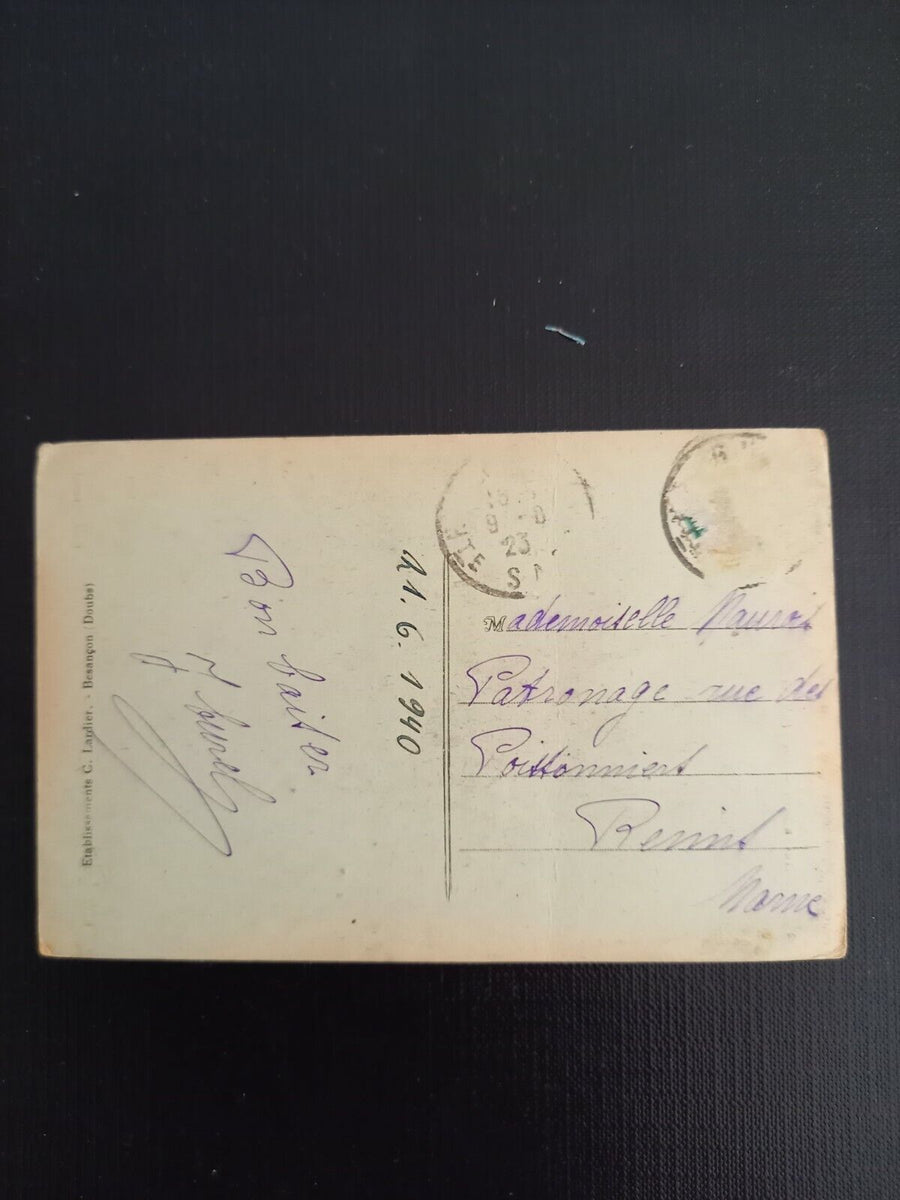 Etablissements C. Lardier. - Besançon (Doubs)
Bon baiser
21. 6. 1940
9 - 8
23
Mademoiselle
Patronage rue des
Poissonniers
Reims
Marne